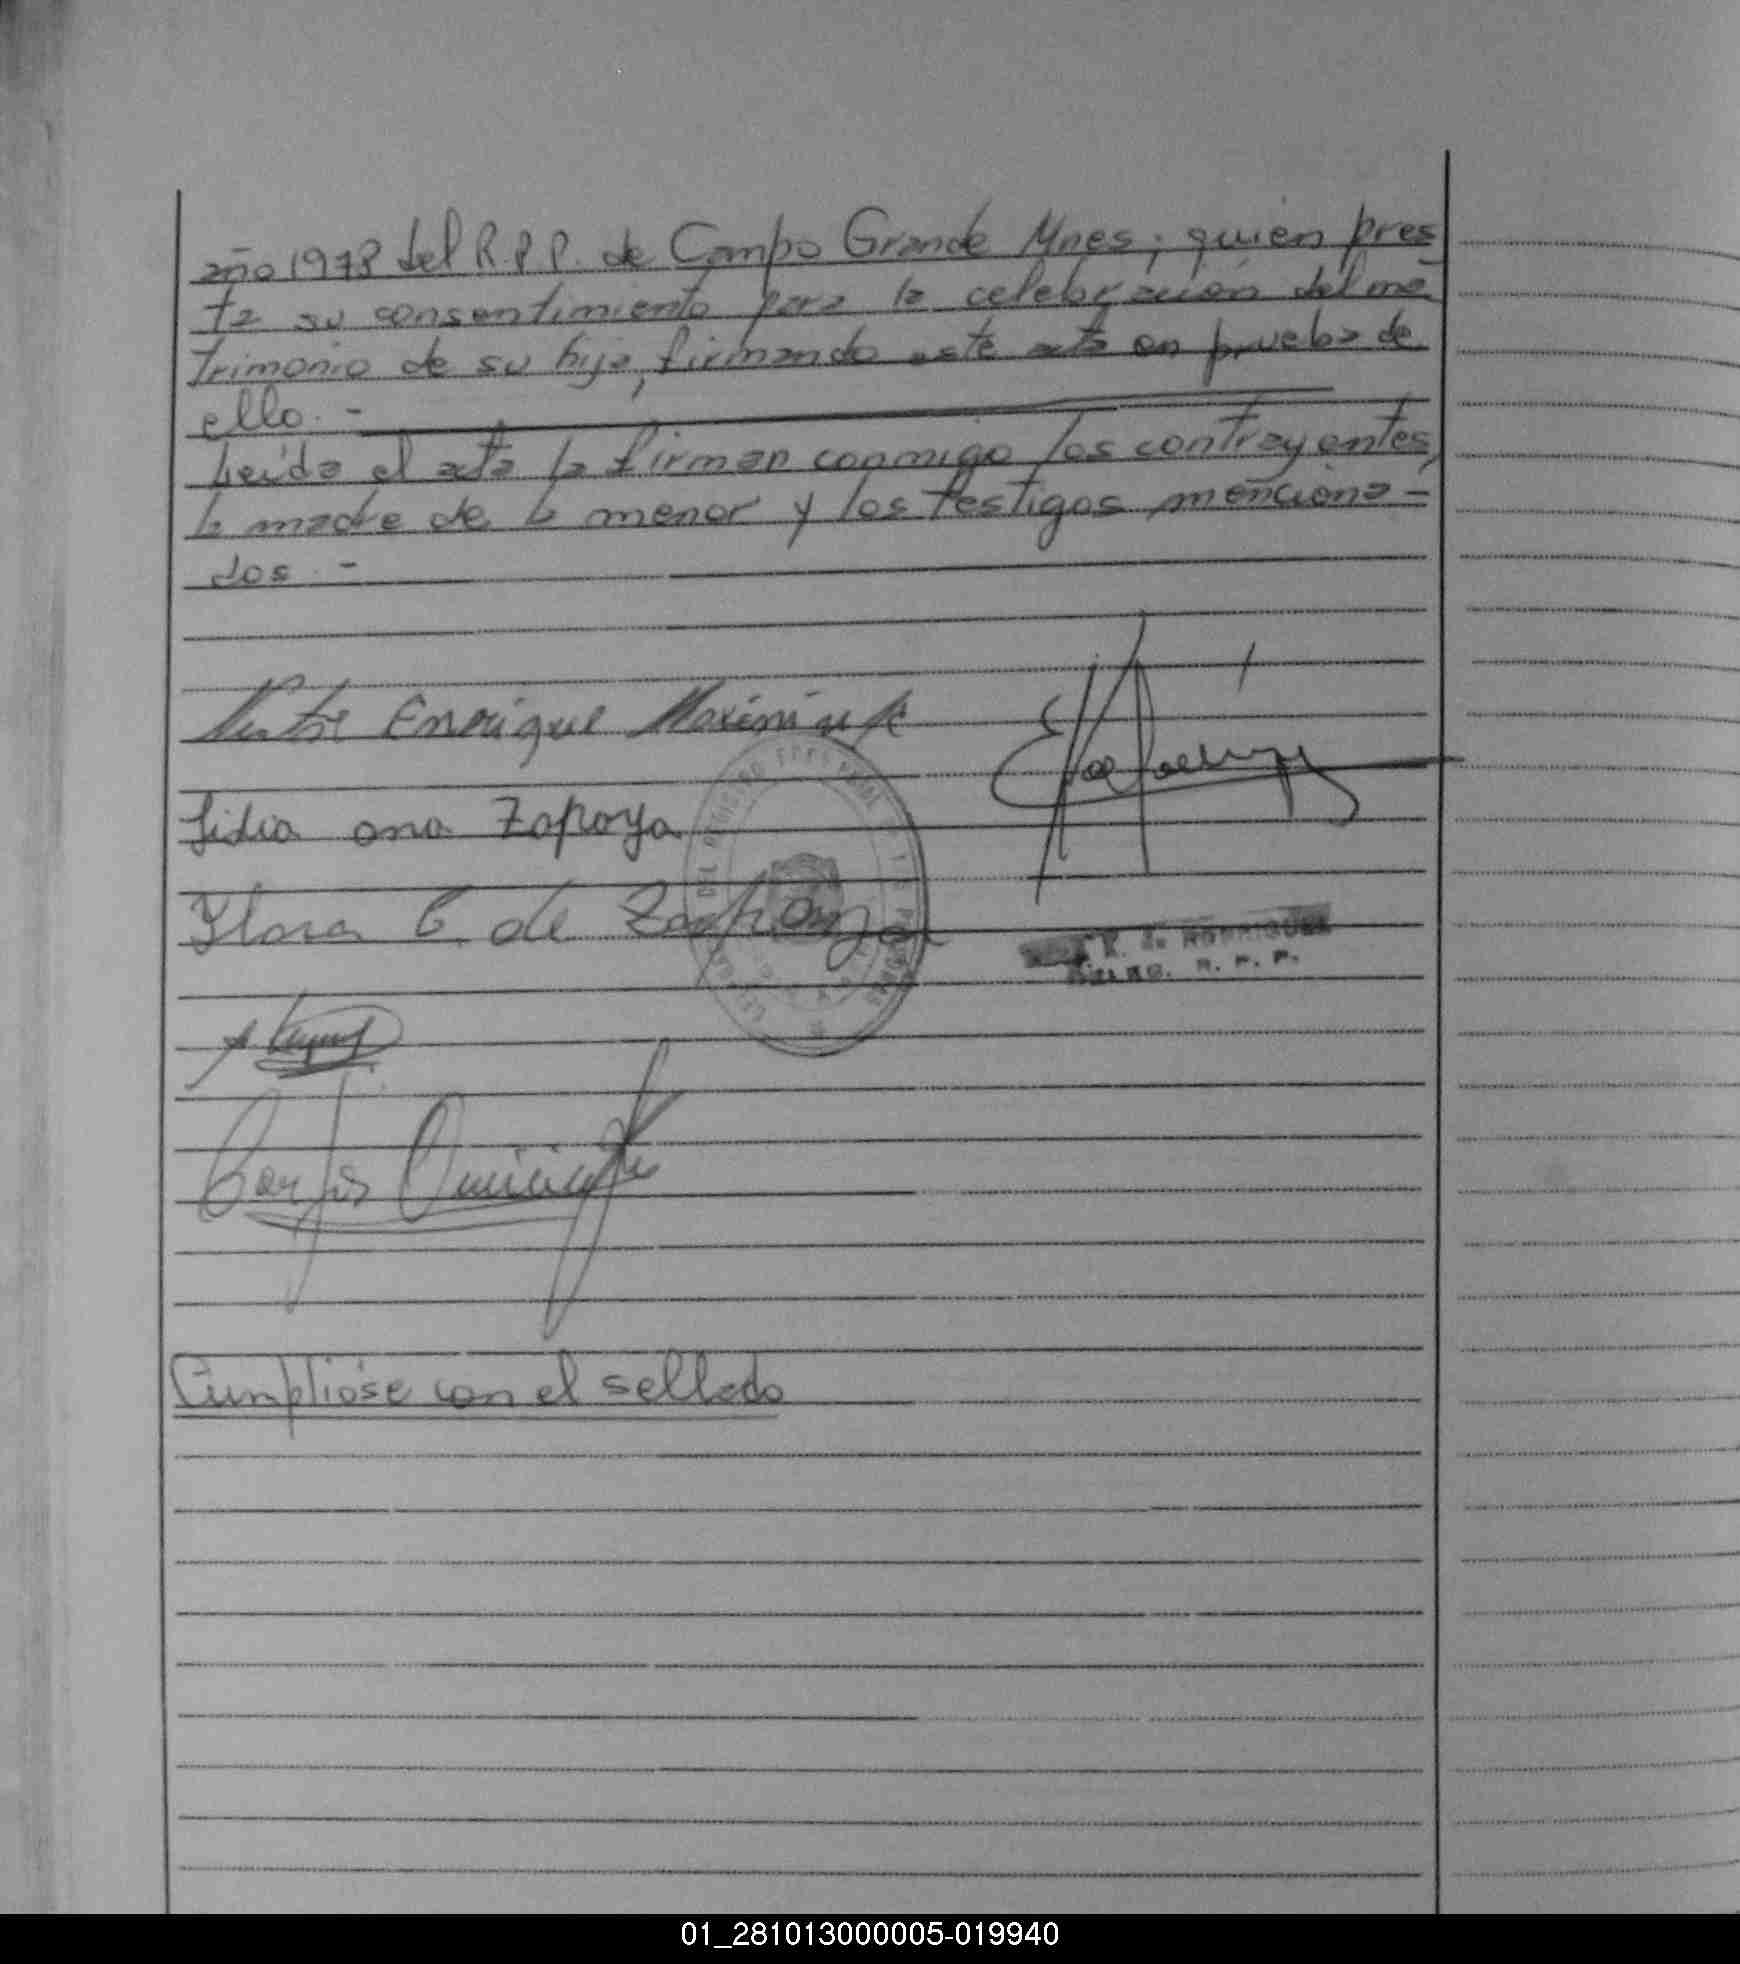 año 1978 del R.P.P. de Campo Grande Mnes; quién pres
ta su consentimiento para la celebración del ma
trimonio de su hija, firmando este acta en prueba de
ello. -
Leída el acta la firman conmigo los contrayentes,
la madre de la menor y los testigos menciona-
dos. -
Enrique
Lidia ana Zapoya
Flora C. de Zapoya
RODRIGUEZ
R. P. P.
Carlos
Cumplióse con el sellado
01_281013000005-019940